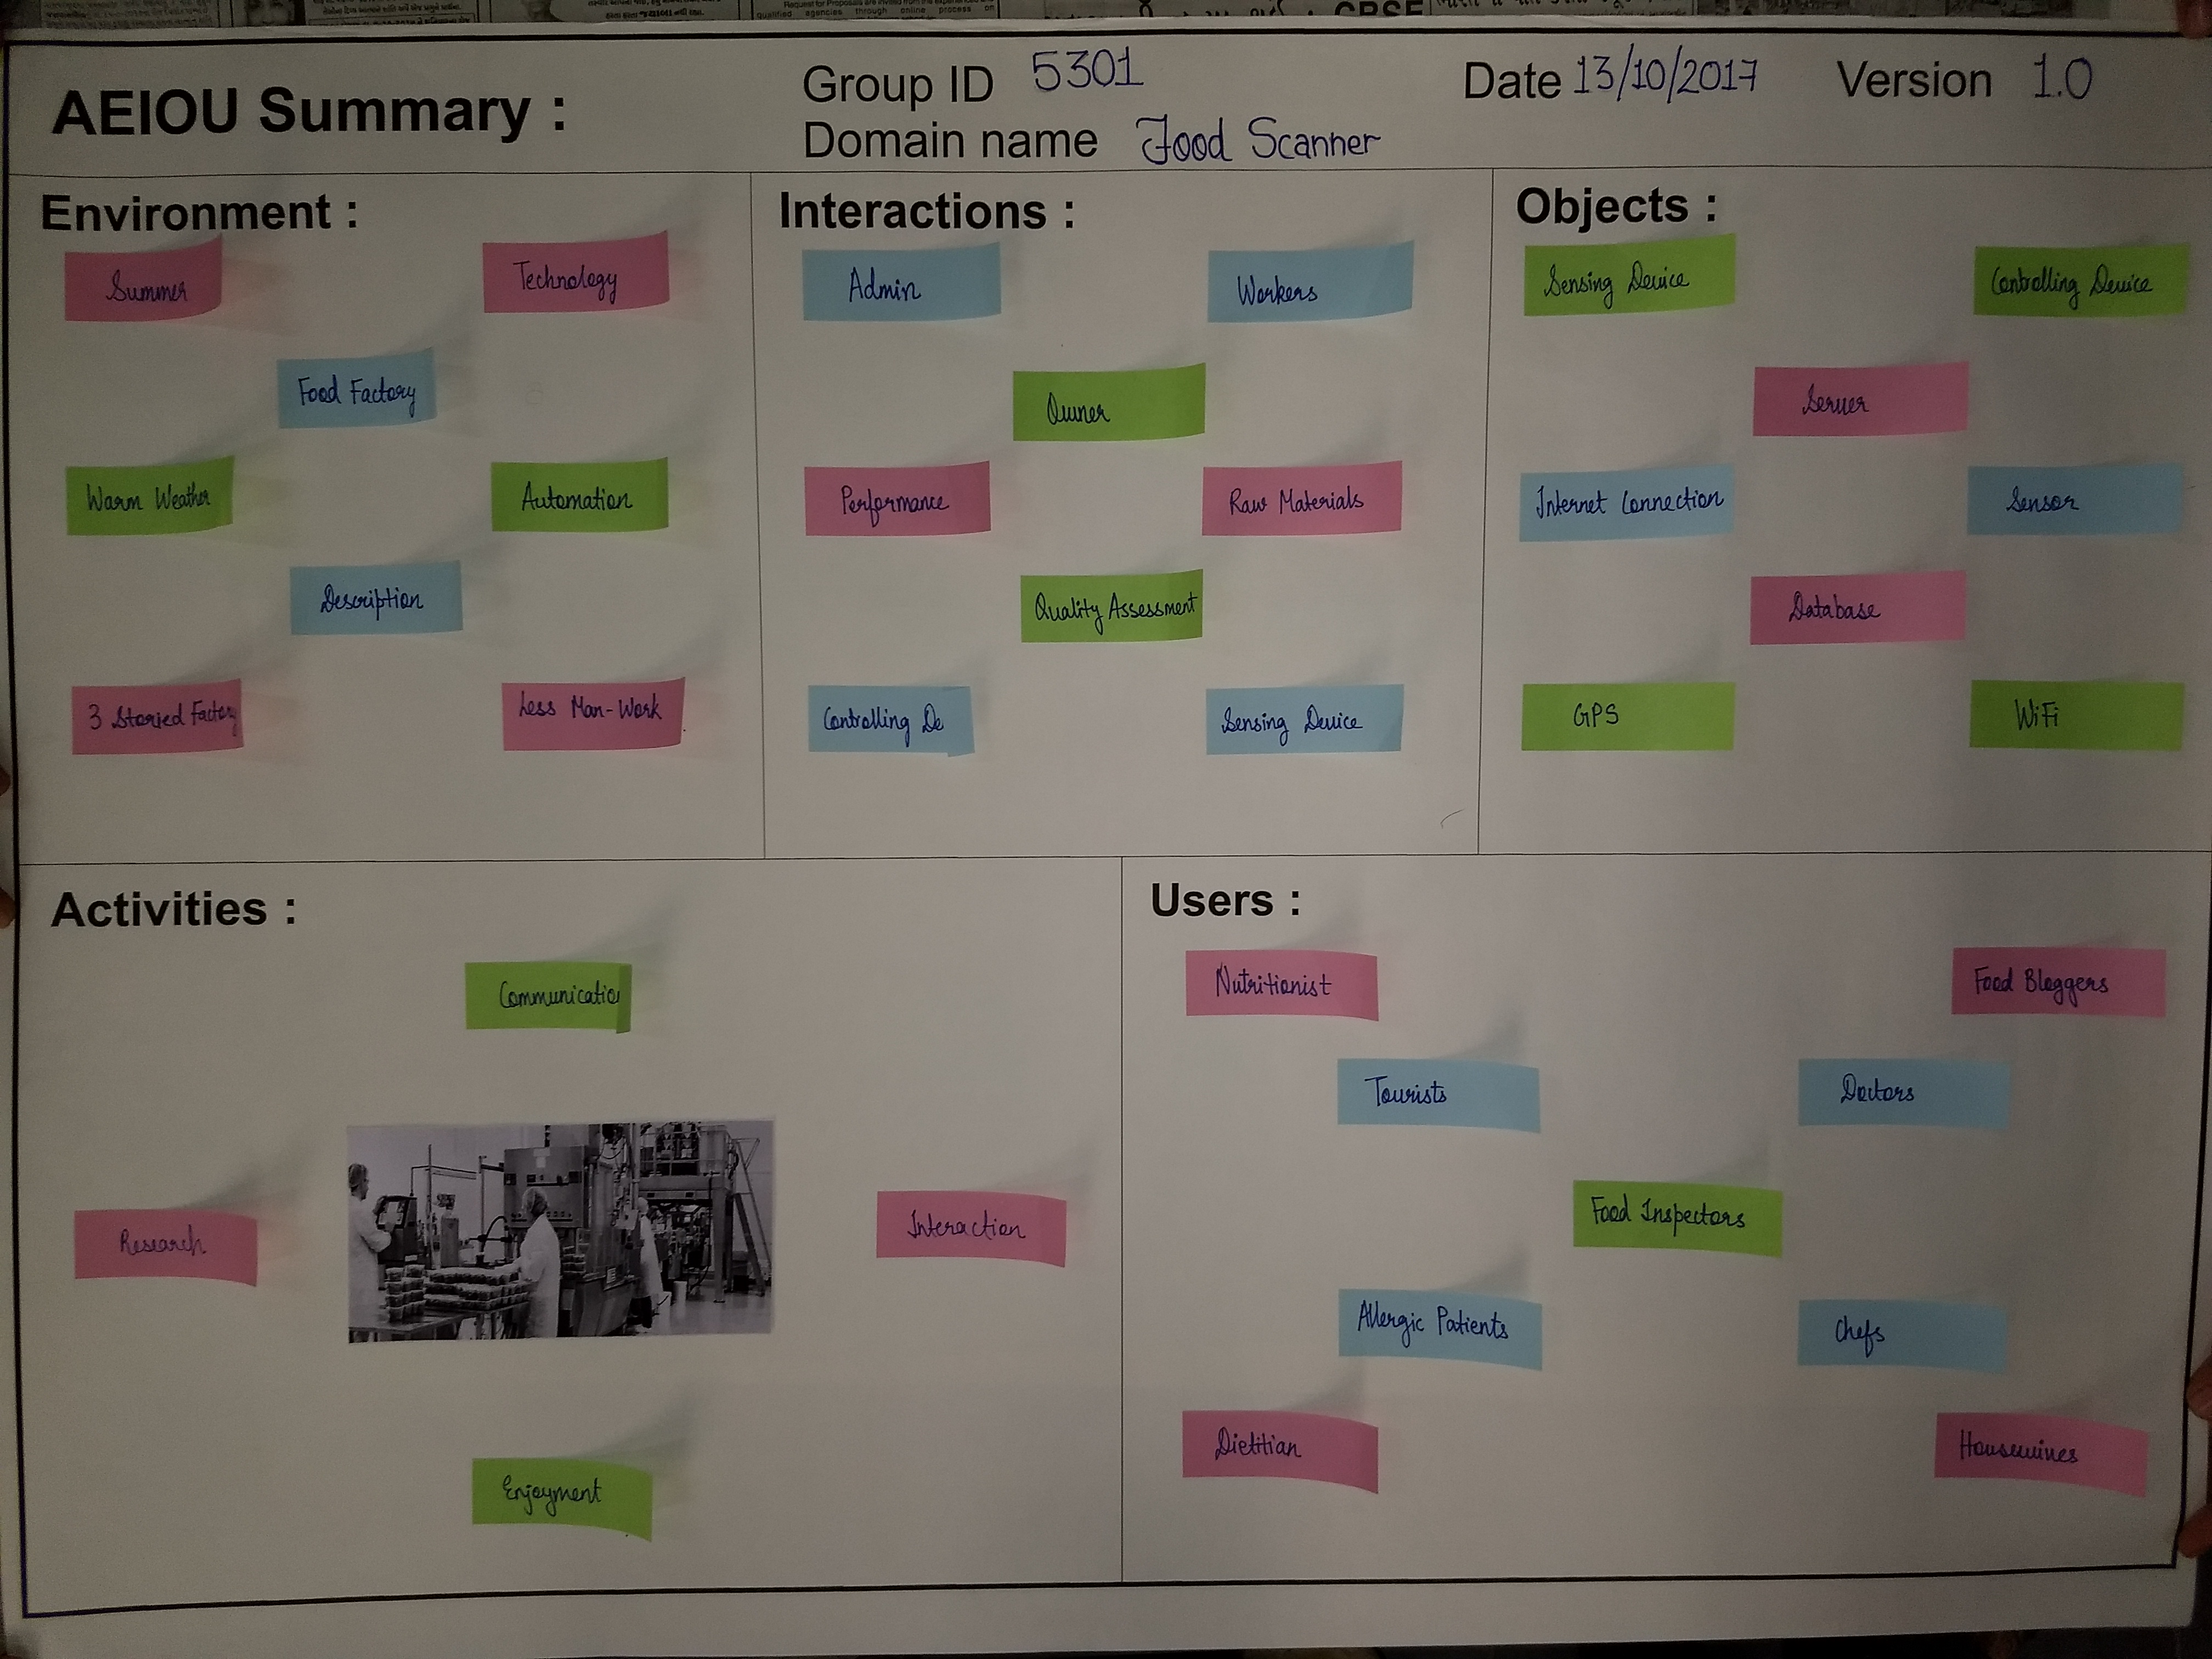 AEIOU Summary :
Group ID 5301
Date 13/10/2017
Version 1.0
Domain name Food Scanner
Environment :
Summer
Technology
Food Factory
Warm Weather
Automation
Description
3 Storied Factory
Less Man-Work
Interactions :
Admin
Workers
Owner
Performance
Raw Materials
Quality Assessment
Controlling De
Sensing Device
Objects :
Sensing Device
Controlling Device
Server
Internet Connection
Sensor
Database
GPS
WiFi
Activities :
Communicatio
Research
Interaction
Enjoyment
Users :
Nutritionist
Food Bloggers
Tourists
Doctors
Food Inspectors
Allergic Patients
Chefs
Dietitian
Housewives